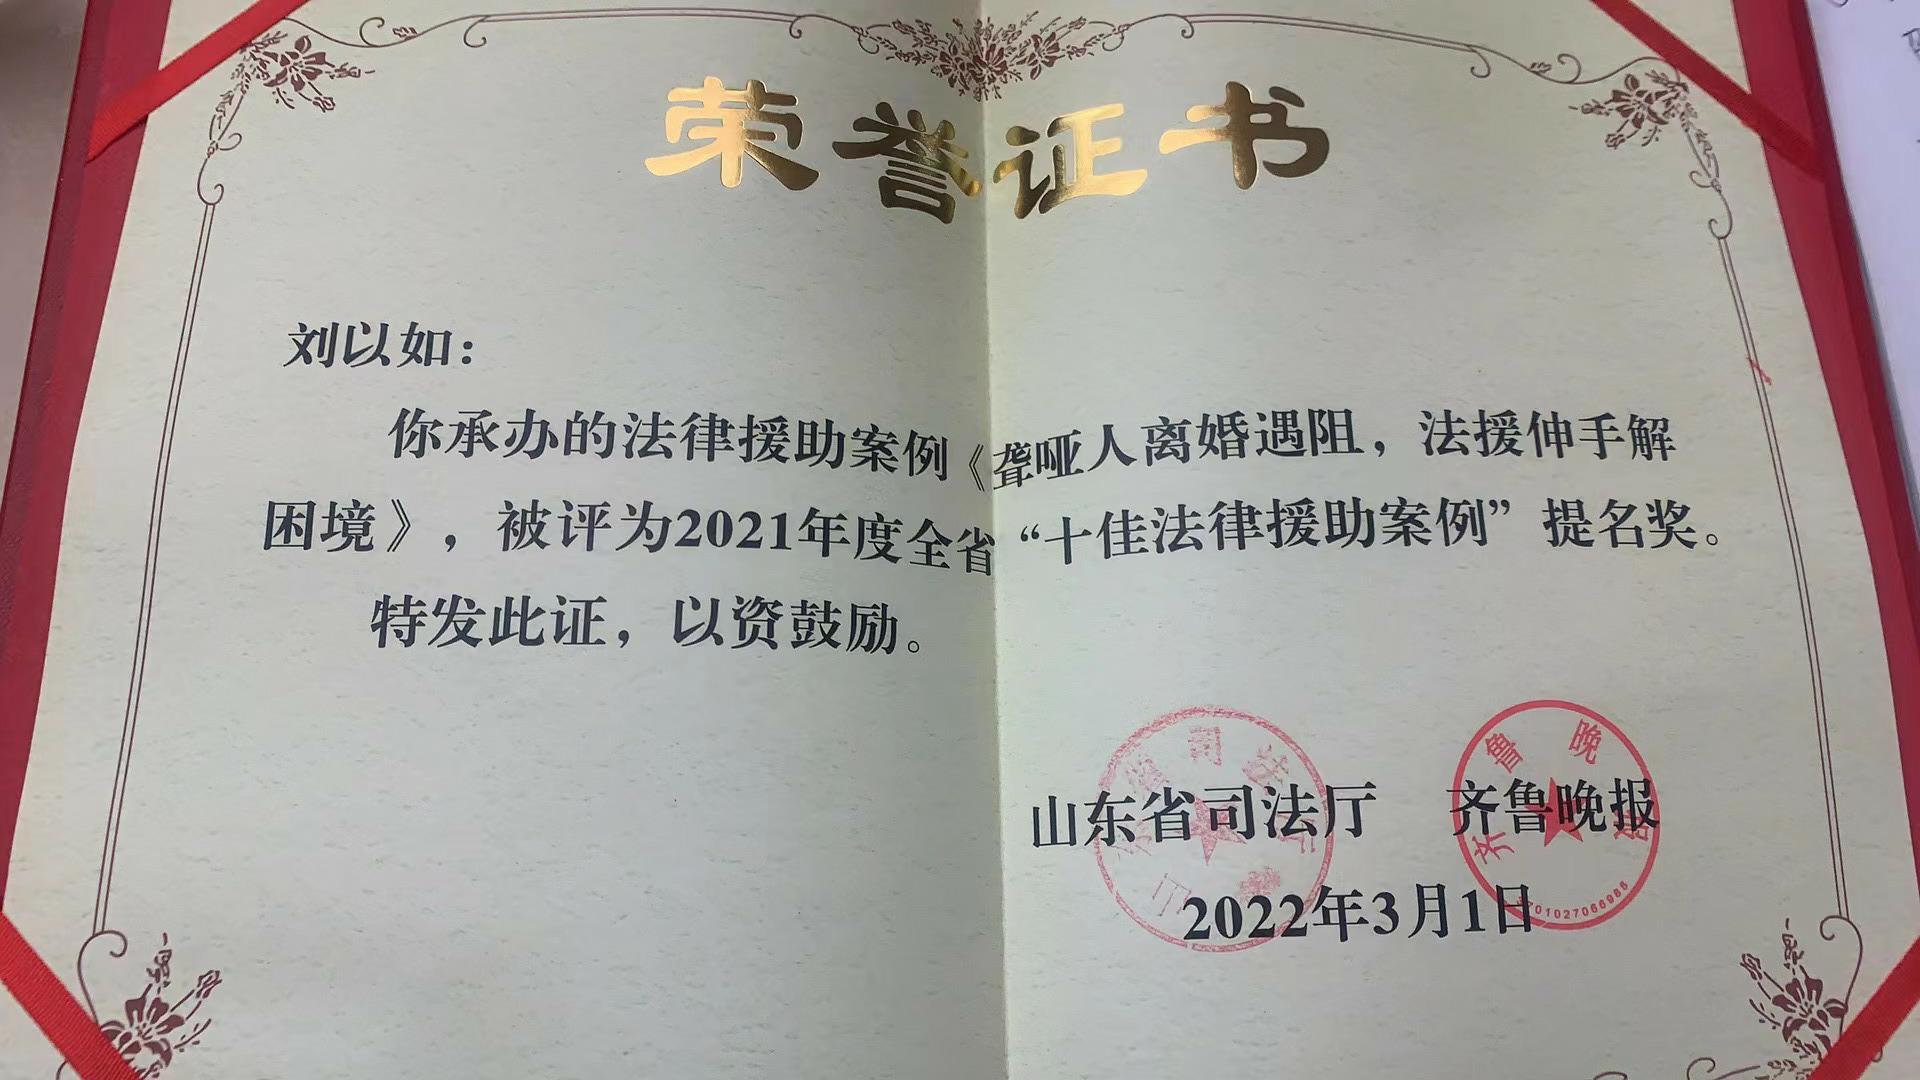 荣誉证书
刘以如：
你承办的法律援助案例《聋哑人离婚遇阻，法援伸手解
困境》，被评为2021年度全省“十佳法律援助案例”提名奖。
特发此证，以资鼓励。
山东省司法厅 齐鲁晚报
2022年3月1日
齐鲁晚报